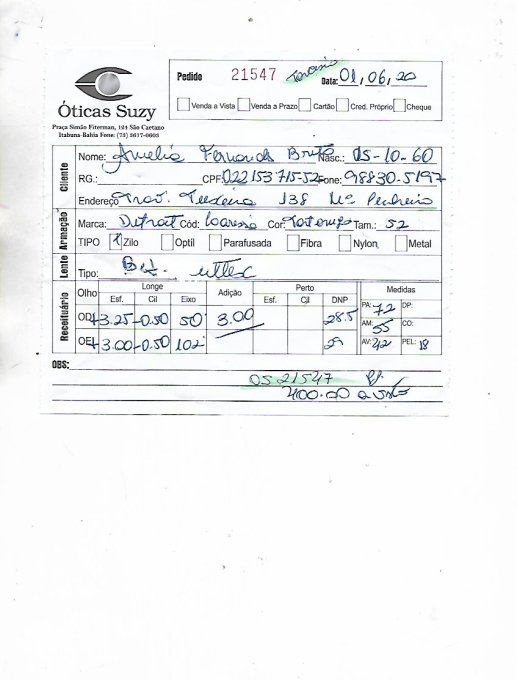 Pedido 21547 Data: 01,06,20
Óticas Suzy
Venda a Vista Venda a Prazo Cartão Cred. Próprio Cheque
Praça Simão Fiterman, 124 São Caetano
Itabuna-Bahia Fone: (73) 3617-0603
Cliente
Nome: Amelia Fernanda Brito Nasc.: 05-10-60
RG.: CPF: 022153715-52 Fone: 98830-5197
Endereço Trav. Teixeira 138 Mª Pinheiro
Armação
Marca: Detroit Cód: Cor: Tartaruga Tam.: 52
TIPO X Zilo Optil Parafusada Fibra Nylon Metal
Lente
Tipo:
Receituário
Olho Longe Adição Perto DNP Medidas
Esf. Cil Eixo Esf. Cil
OD +3.25 -0.50 50 3.00 28.5 PA: 72 DP:
AM: 55 CO:
OE +3.00 -0.50 102 29 AV: 42 PEL: 18
OBS:
OS 21547
400.00 a vista